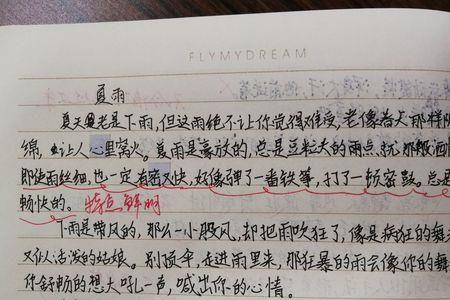 FLYMYDREAM
夏雨
夏天老是下雨,但这雨绝不让你觉得难受,老像春天那样阴
绵,让人心里窝火。夏雨是豪放的,总是豆粒大的雨点,就那般洒
即使雨丝细,也一定有密又快,好像弹了一番铁筝,打了一顿密鼓。总是
畅快的。 特点鲜明
下雨是带风的,那么一小股风,却把雨吹狂了,像是疯狂的舞
又似活泼的姑娘。别顶伞,走进雨里来,那狂暴的雨会像你的舞
你舒畅的想大吼一声,喊出你的心情。